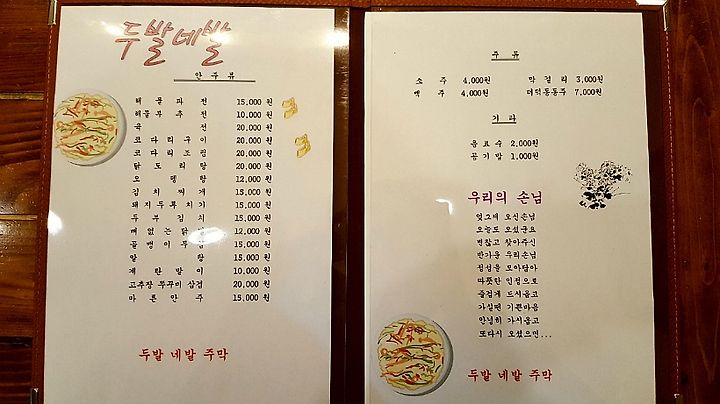 두발네발
안주류
해물파전 15,000 원
해물부추전 10,000 원
육전 20,000 원
코다리구이 20,000 원
코다리조림 20,000 원
닭도리탕 20,000 원
오뎅탕 12,000 원
김치찌개 15,000 원
돼지두루치기 15,000 원
두부김치 15,000 원
뼈없는닭발 12,000 원
골뱅이무침 15,000 원
알탕 15,000 원
계란말이 10,000 원
고추장쭈꾸미삼겹 20,000 원
마른안주 15,000 원
두발 네발 주막
주류
소주 4,000원 막걸리 3,000원
맥주 4,000원 더덕동동주 7,000원
기타
음료수 2,000원
공기밥 1,000원
우리의 손님
엊그제 오신손님
오늘도 오셨군요
변찮고 찾아주신
반가운 우리손님
정성을 모아담아
따뜻한 인정으로
즐겁게 드시옵고
가실땐 기쁜마음
안녕히 가시옵고
또다시 오셨으면...
두발 네발 주막